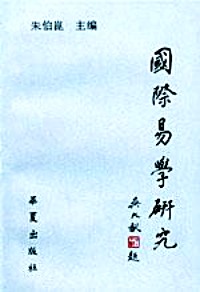 朱伯崑 主编
國際易學研究
吴大猷 题
華夏出版社